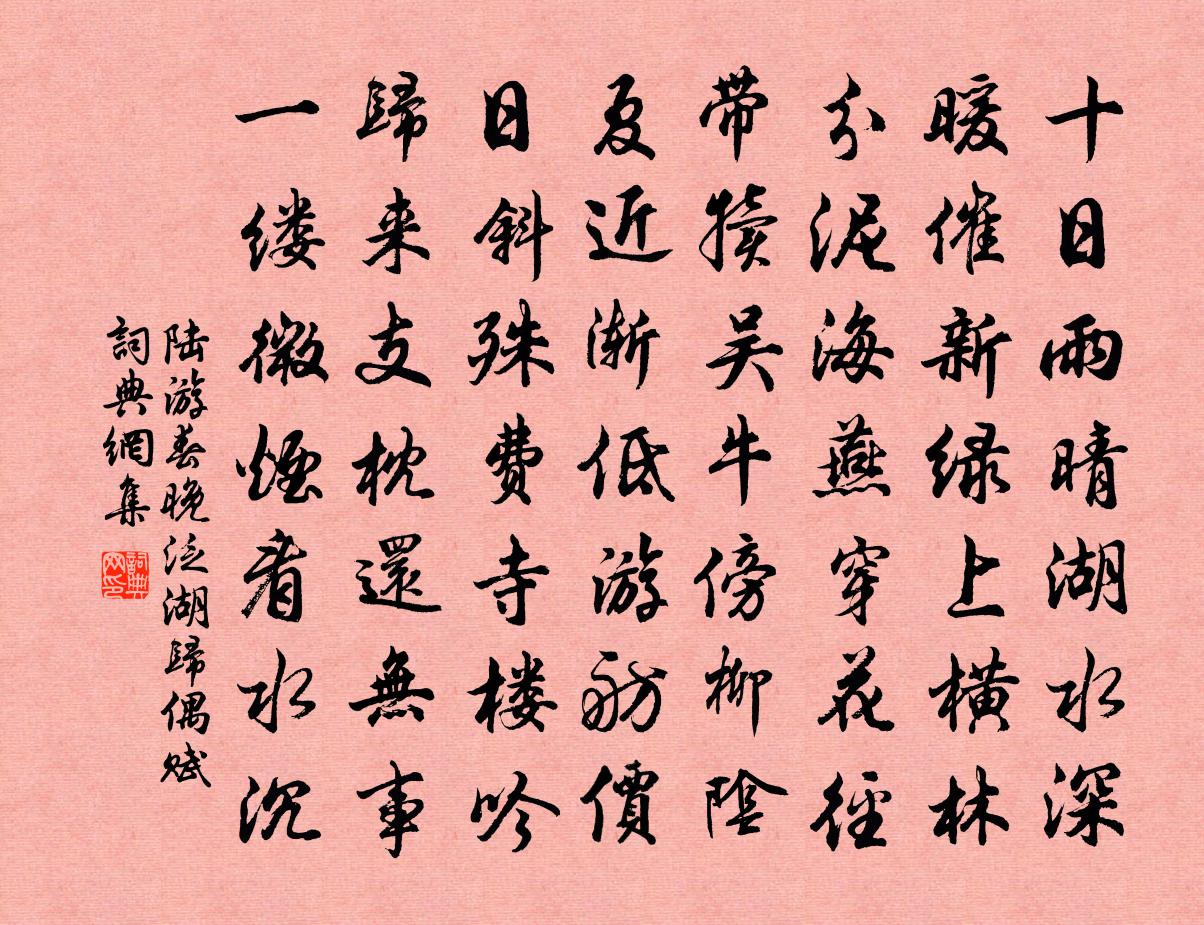 十日雨晴湖水深
暖催新绿上横林
分泥海燕穿花径
带犊吴牛傍柳陰
夏近渐低游舫價
日斜殊费寺楼吟
歸来支枕還無事
一缕微煙看水沉
陆游春晚泛湖歸偶赋
詞典網集
詞典
网印